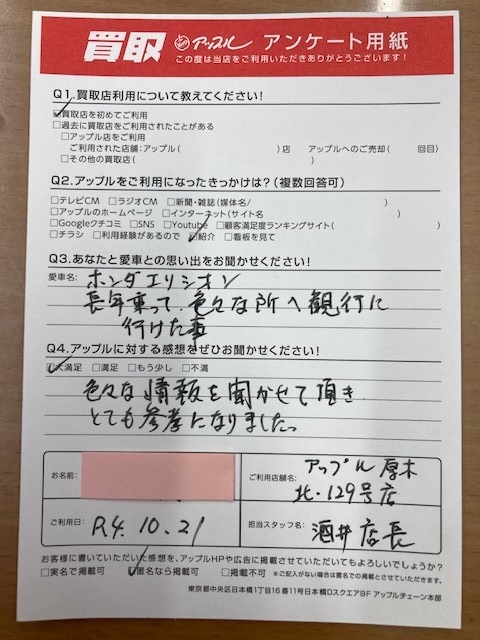 買取 アップル アンケート用紙
この度は当店をご利用いただきありがとうございます!
Q1.買取店利用について教えてください!
☑買取店を初めてご利用
□過去に買取店をご利用されたことがある
□アップル店をご利用
ご利用された店舗:アップル( )店 アップルへのご売却( 回目)
□その他の買取店( )
Q2.アップルをご利用になったきっかけは?(複数回答可)
□テレビCM □ラジオCM □新聞・雑誌(媒体名/ )
□アップルのホームページ □インターネット(サイト名 )
□Googleクチコミ □SNS □Youtube □顧客満足度ランキングサイト( )
□チラシ □利用経験があるので ☑紹介 □看板を見て
Q3.あなたと愛車との思い出をお聞かせください!
愛車名: ホンダエリシオン
長年乗って、色々な所へ観行に
行けた事
Q4.アップルに対する感想をぜひお聞かせください!
☑大満足 □満足 □もう少し □不満
色々な情報を聞かせて頂き
とても参考になりました。
お名前:
ご利用店舗名: アップル厚木
北・129号店
ご利用日: R4.10.21
担当スタッフ名: 酒井店長
お客様に書いていただいた感想を、アップルHPや広告に掲載させていただいてもよろしいでしょうか?
□実名で掲載可 ☑匿名なら掲載可 □掲載不可 ※ご記入がない場合は匿名での掲載とさせていただきます。
東京都中央区日本橋1丁目16番11号日本橋Dスクエア9F アップルチェーン本部